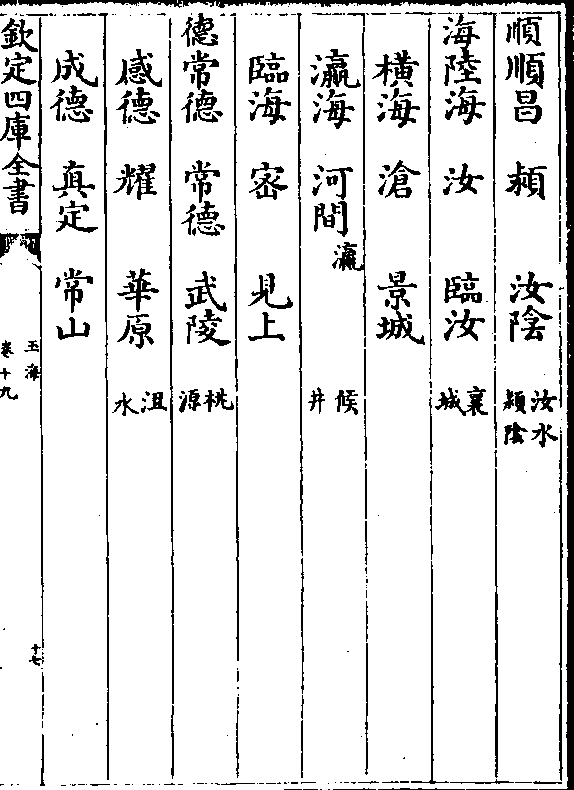 順順昌 頮 汝隂 汝水潁隂
海陸海 汝 臨汝 襄城
橫海 滄 景城
瀛海 河間瀛 候井
臨海 宻 見上
德常德 常德 武陵 桃源
感德 耀 華原 沮水
成德 真定 常山
欽定四庫全書 玉海卷十九 十七